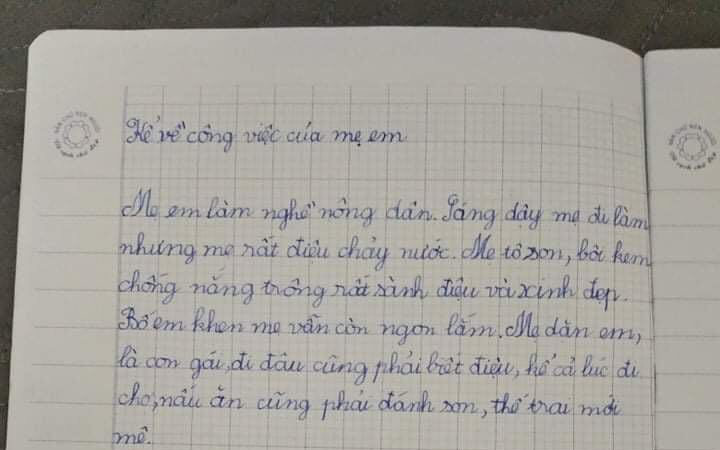 Kể về công việc của mẹ em
Mẹ em làm nghề nông dân. Sáng dậy mẹ đi làm
nhưng mẹ rất điệu chảy nước. Mẹ tô son, bôi kem
chống nắng trông rất sành điệu và xinh đẹp.
Bố em khen mẹ vẫn còn ngon lắm. Mẹ dặn em,
là con gái, đi đâu cũng phải biết điệu, kể cả lúc đi
chợ, nấu ăn cũng phải đánh son, thế trai mới
mê.